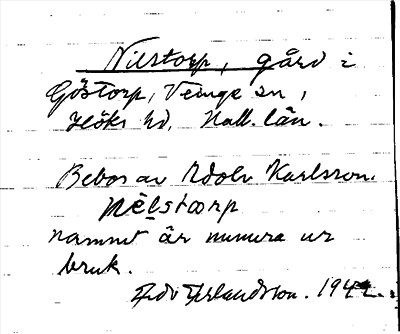 Nilstorp, gård i
Göstorp, Veinge sn,
Höks hd, Hall. län.
Bebos av Adolv Karlsson.
nèlstorp
namnet är numera ur
bruk.
Erlandsson. 1942.